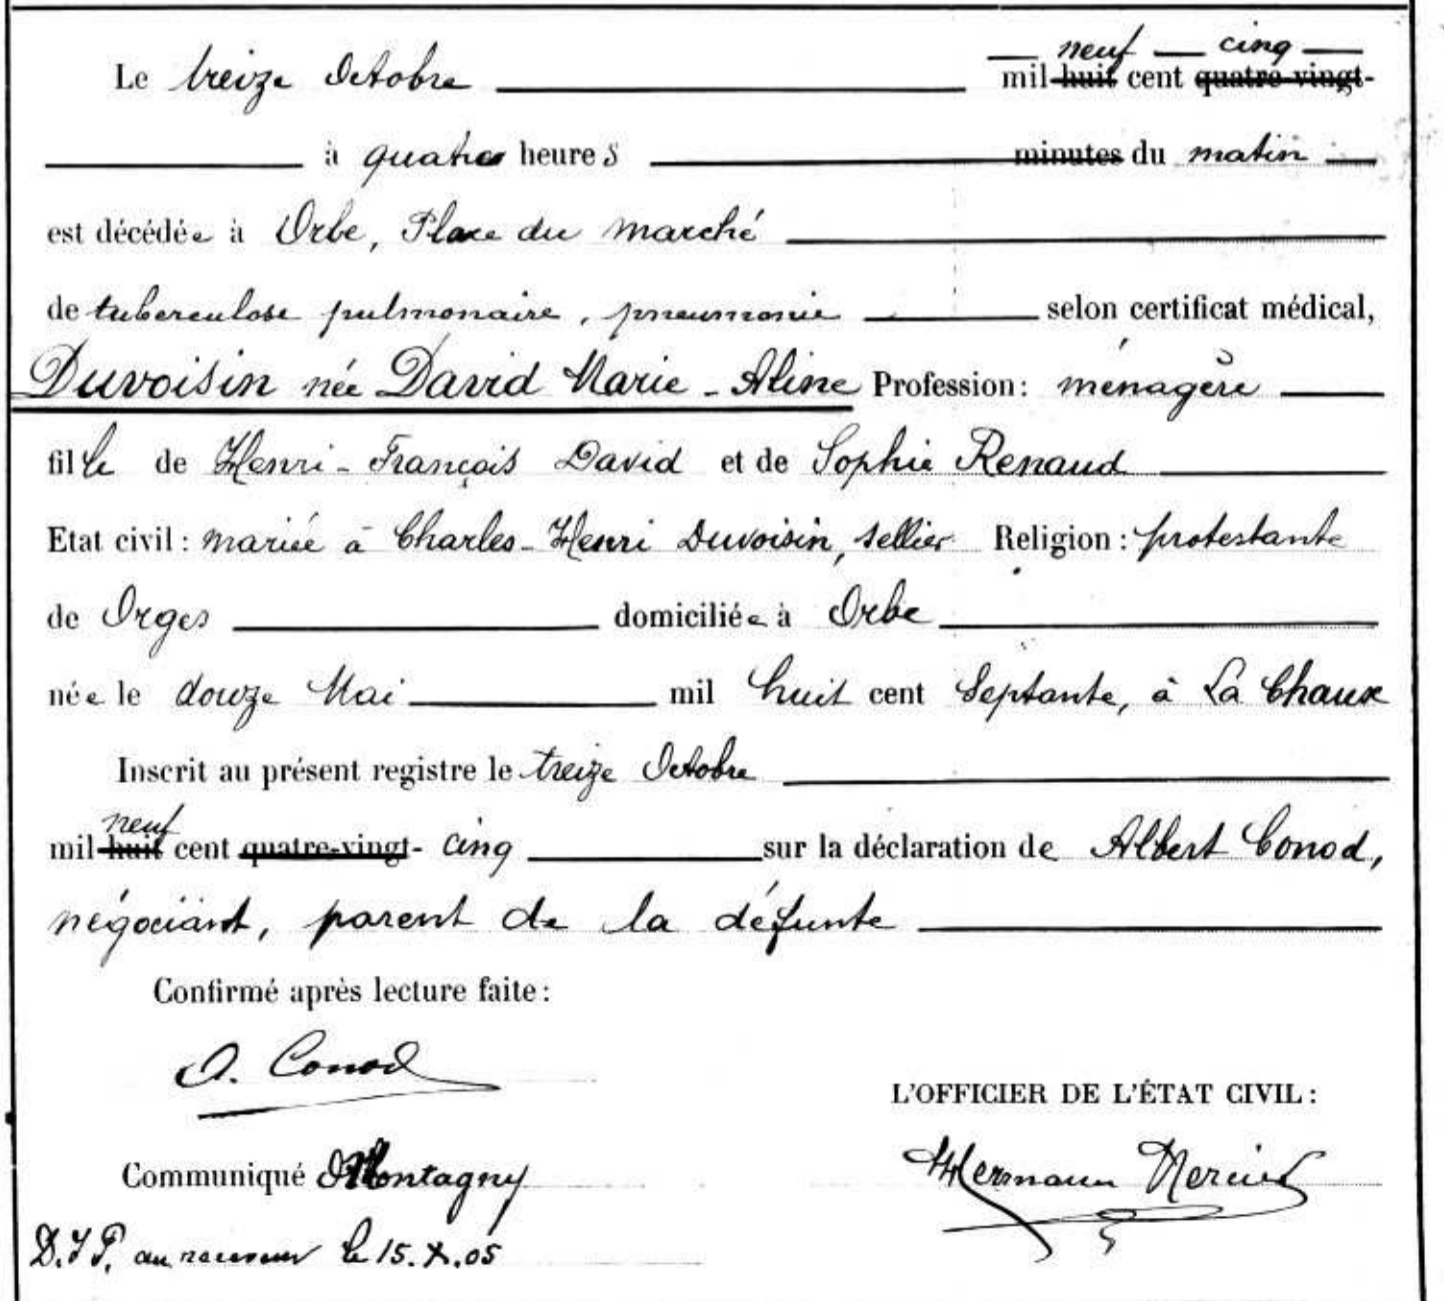 neuf cinq
Le treize Octobre mil huit cent quatre-vingt-
à quatre heures minutes du matin
est décédée à Orbe, Place du marché
de tuberculose pulmonaire, pneumonie selon certificat médical,
Duvoisin née David Marie-Aline Profession: ménagère
fille de Henri-François David et de Sophie Renaud
Etat civil: mariée à Charles-Henri Duvoisin, sellier Religion: protestante
de Orges domiciliée à Orbe
née le douze Mai mil huit cent septante, à La Chaux
Inscrit au présent registre le treize Octobre
neuf
mil huit cent quatre-vingt- cinq sur la déclaration de Albert Conod,
négociant, parent de la défunte
Confirmé après lecture faite:
A. Conod
L'OFFICIER DE L'ÉTAT CIVIL:
Communiqué Montagny
Hermann Mercier
au receveur le 15.X.05